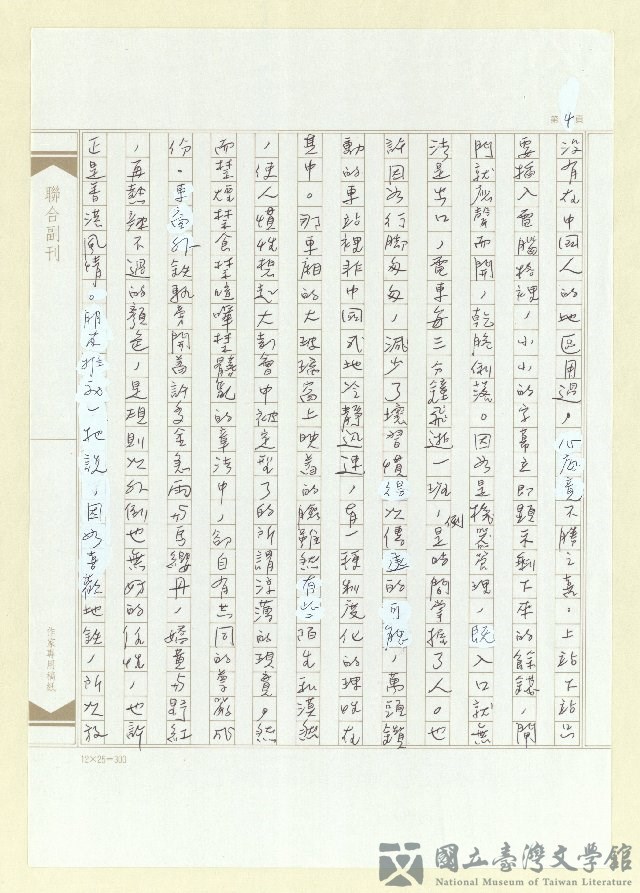 第4頁
沒有在中國人的地區用過，心底竟不勝之喜。上站下站只
要插入電腦格裡，小小的字幕立即顯示剩下來的餘錢，閘
門就應聲而開，乾脆俐落。因為是機器管理，既入口就無
法是出口，電車每三分鐘飛逝一班，倒是時間掌握了人。也
許因為行腳匆匆，減少了壞習慣得以傳遞的可能，萬頭鑽
動的車站裡非中國式地冷靜迅速，有一種制度化的理性在
其中。那車廂的大玻璃窗上映着的臉雖然有些陌生和漠然
，使人慣性想起大都會中被定型了的所謂淳薄的現實，然
而禁煙禁食禁喧嘩禁髒亂的章法中，卻自有共同的尊嚴成
份。車窗外鐵軌旁開着許多金急雨與馬纓丹，嬌黃與野紅
，再熱辣不過的顏色，是規則以外倒也無妨的任性，也許
正是香港風情。朋友推動地說，因為喜歡地鐵，所以放
聯合副刊
作家專用稿紙
12×25=300
國立臺灣文學館
National Museum of Taiwan Literature